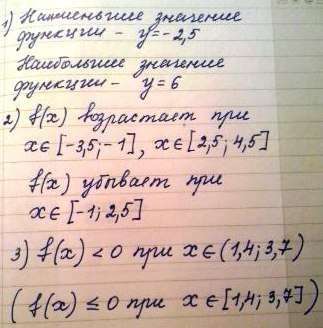 1) Наименьшее значение
функции - y=-2,5
Наибольшее значение
функции - y=6
2) f(x) возрастает при
x∈[-3,5;-1], x∈[2,5; 4,5]
f(x) убывает при
x∈[-1; 2,5]
3) f(x) < 0 при x∈(1,4; 3,7)
(f(x) ≤ 0 при x∈[1,4; 3,7])